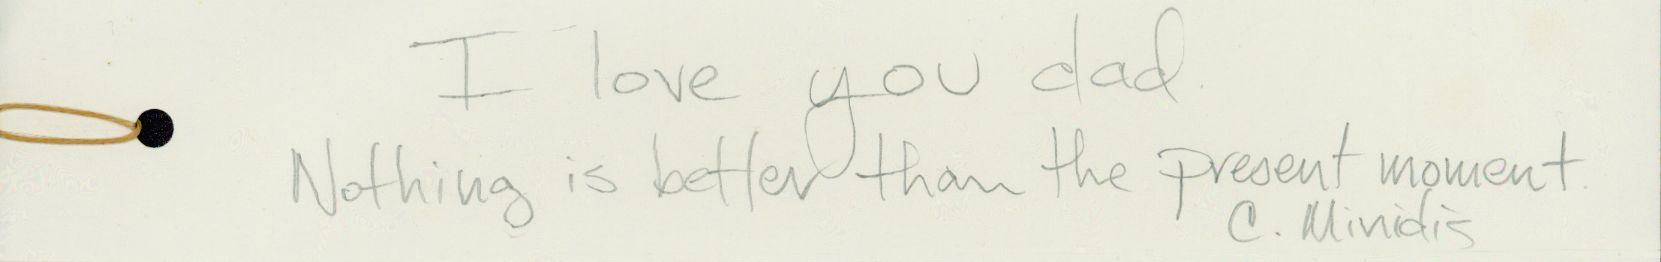 I love you dad.
Nothing is better than the present moment.
C. Minidis